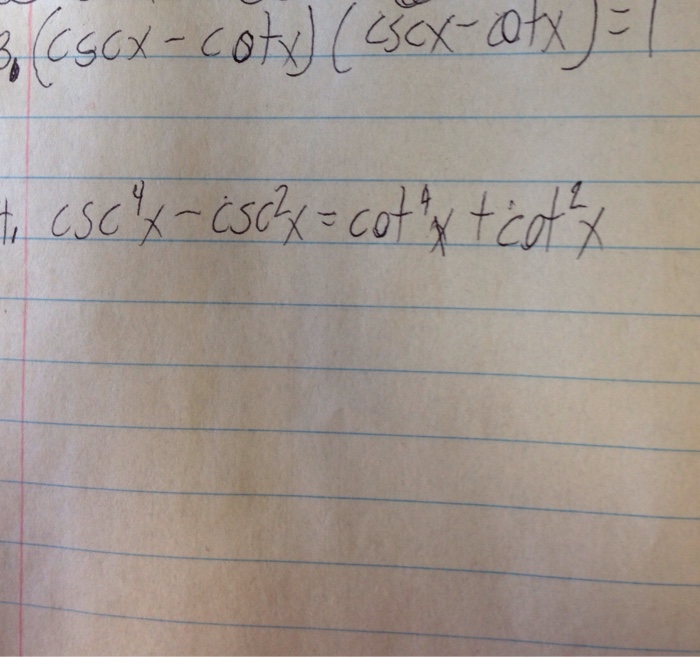 3. (cscx - cotx) (cscx - cotx) = 1
csc⁴x - csc²x = cot⁴x + cot²x